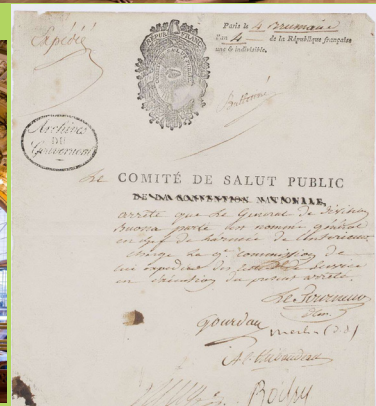 Expédié
Paris le 4 Brumaire
l'an 4 de la République française
une & indivisible.
Archives
DU
Gouvernement
Le COMITÉ DE SALUT PUBLIC
DE LA CONVENTION NATIONALE,
arrête que le Général de division
Buonaparte est nommé général
en chef de l'armée de l'intérieur
charge la 9e Commission de
lui expédier des lettres de service
en exécution du présent arrêté.
Le Tourneur
Gourdan
Merlin (D.D)
A C Thibaudeau
Boissy